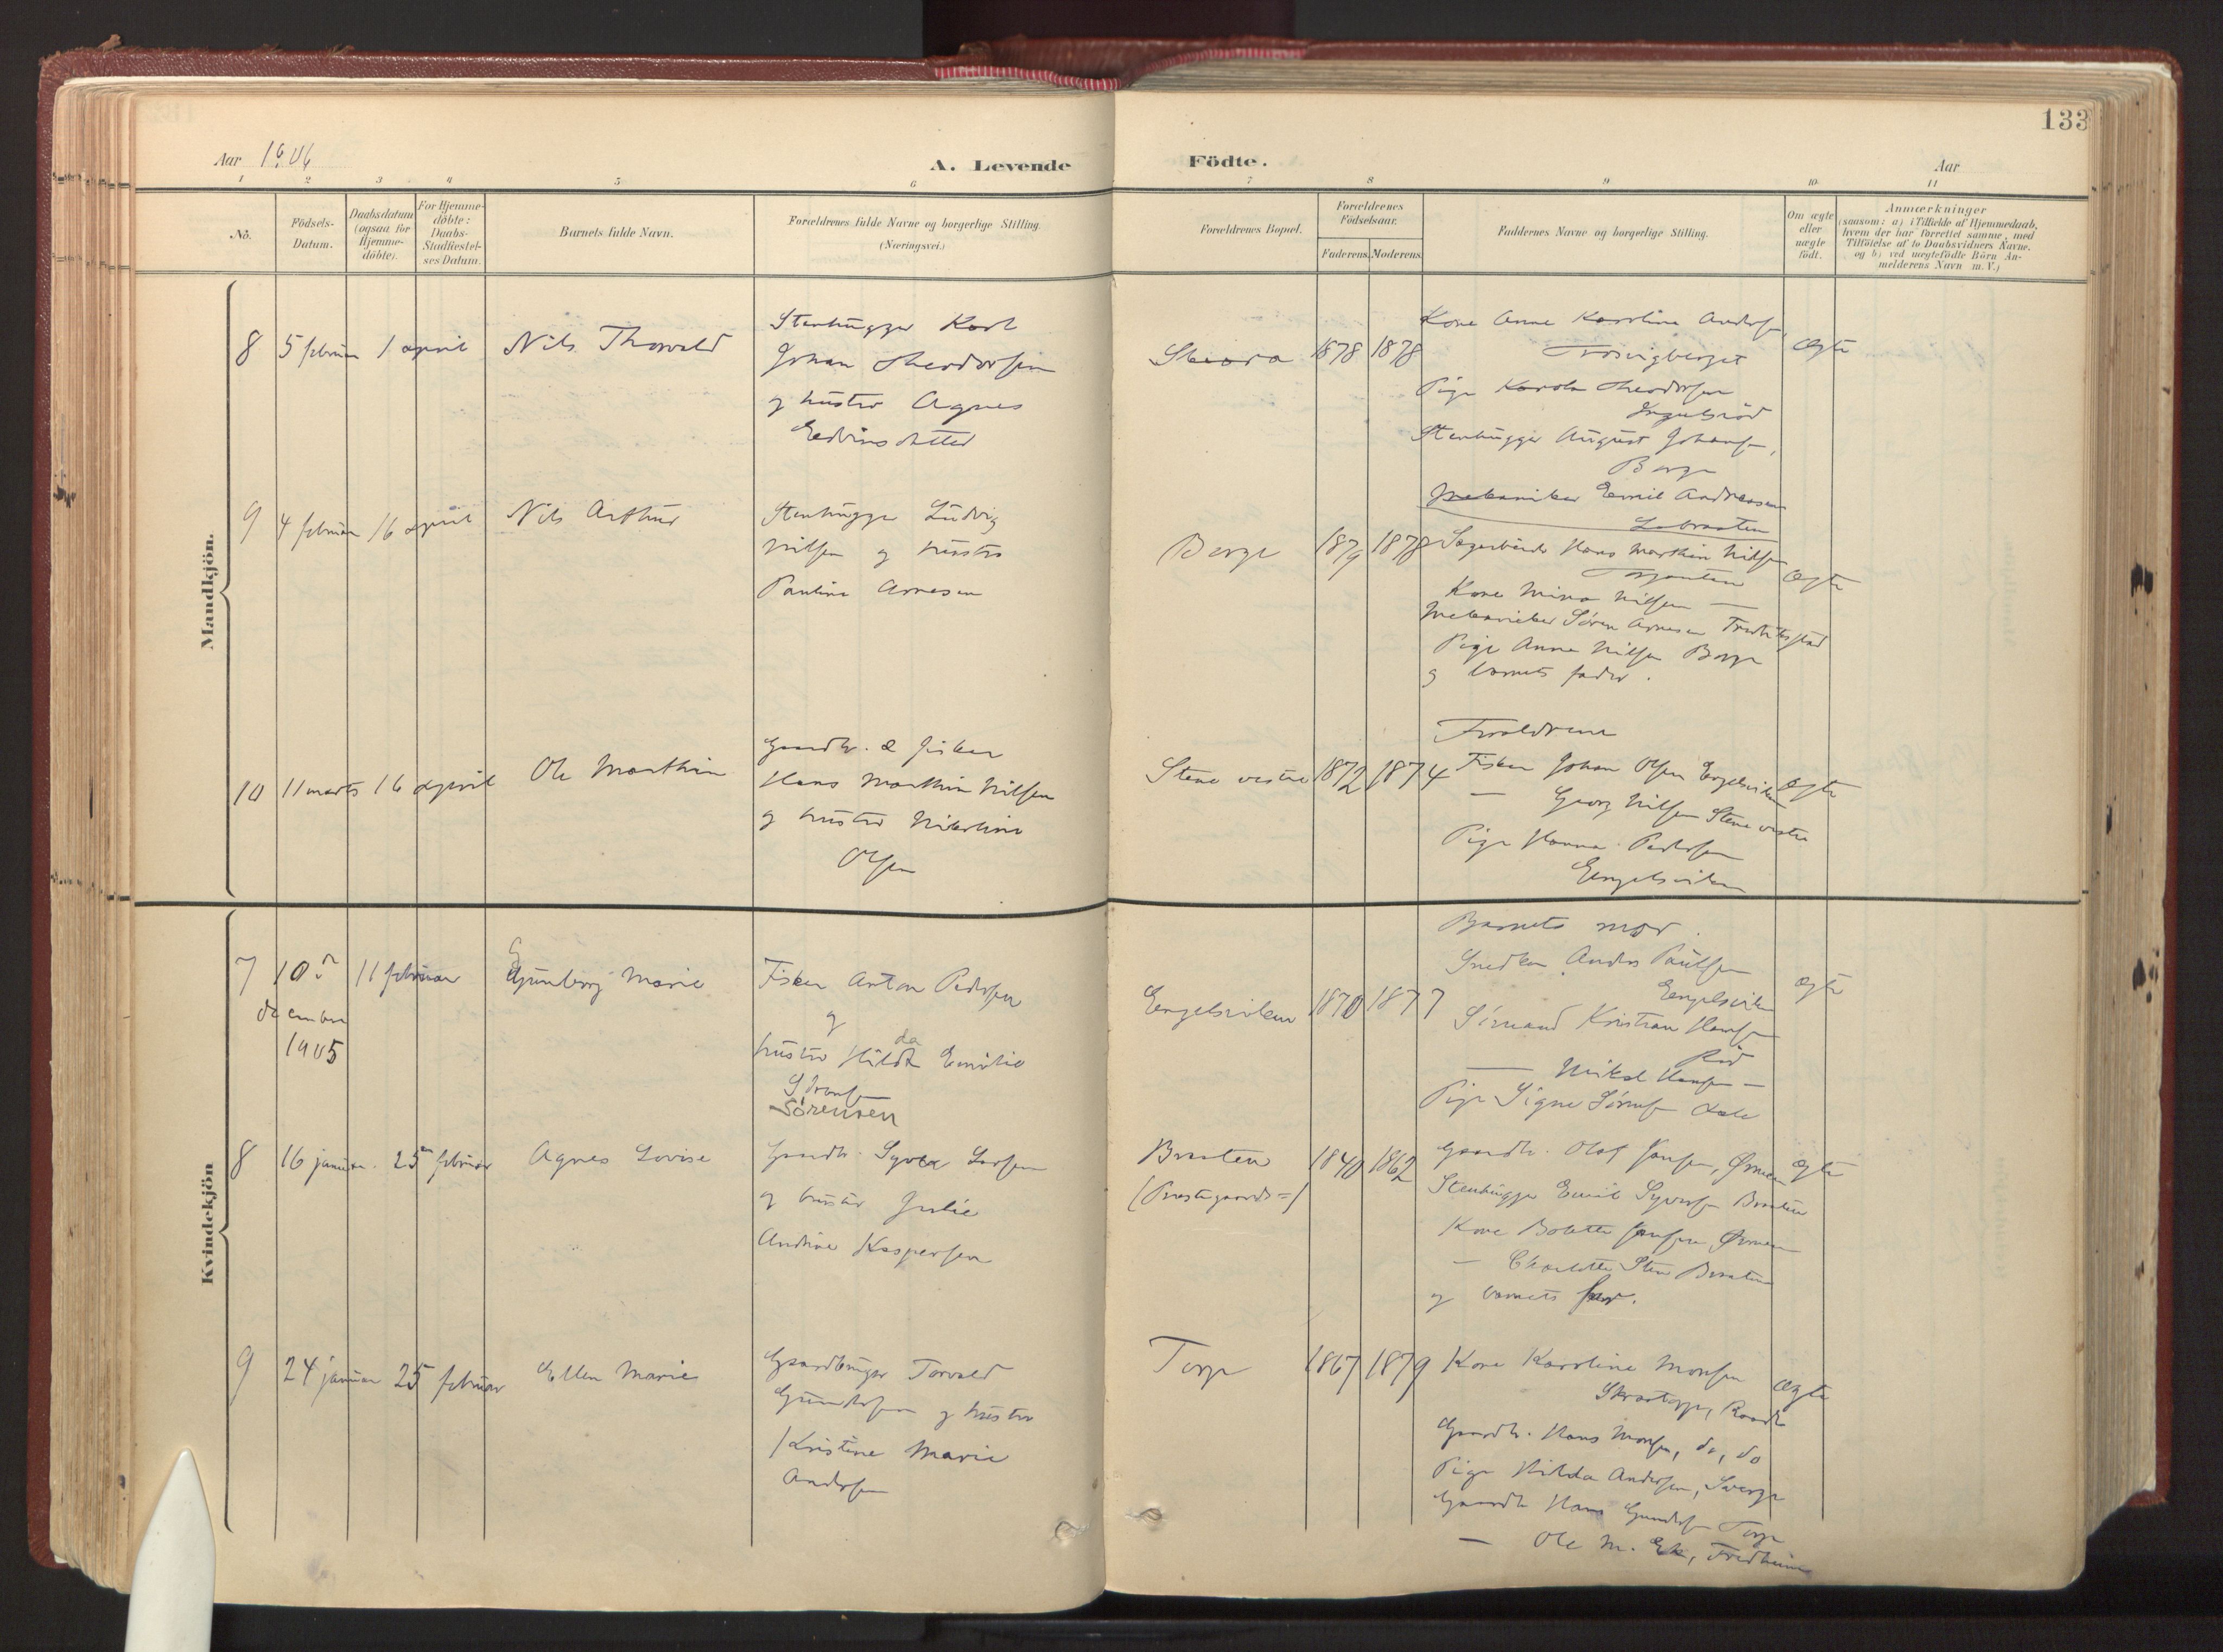 133
Aar 1906
A. Levende
Födte.
Aar
1 2 3 4 5 6 7 8 9 10 11
No.
Födsels-
Datum.
Daabsdatum
(ogsaa for
Hjemme-
döbte).
For Hjemme-
döbte:
Daabs-
Stadfæstel-
ses Datum.
Barnets fulde Navn.
Forældrenes fulde Navne og borgerlige Stilling.
(Næringsvei.)
Forældrenes Bopæl.
Forældrenes
Födselsaar.
Faderens. Moderens.
Faddernes Navne og borgerlige Stilling.
Om ægte
eller
uægte
födt.
Anmærkninger
(saasom: a) i Tilfælde af Hjemmedaab,
hvem der har forrettet samme, med
Tilföielse af to Daabsvidners Navne.
og b) ved uægtefödte Börn An-
melderens Navn m. V.)
Mandkjön.
8 5 februar 1 april Nils Thorvald
Stenhugger Karl
Johan Theodorsen
og hustru Agnes
Edvinsdatter
1878 1878
Kone Anne Karoline Andersen,
Trosvigberget
Pige Karola Theodorsen
Ingulsröd
Stenhugger August Johansen,
Borge
Mekaniker Emil Andreassen
Labraaten
ægte
9 4 februar 16 april Nils Arthur
Stenhugger Ludvig
Nilsen og hustru
Pauline Arnesen
Borge 1879 1878
Hans Marthin Nilsen
Kone Mina Nilsen —
Mekaniker Sören Arnesen Fredrikstad
Pige Anna Nilsen Borge
og barnets fader.
ægte
10 11 marts 16 april Ole Marthin
Gaardbr. & fisker
Hans Marthin Nilsen
og hustru Nikoline
Olsen
Stene vestre 1872 1874
Forældrene
Fisker Johan Olsen Engelsviken
— Georg Nilsen Stene vestre
Pige Hanna Pedersen
Engelsviken
ægte
Kvindekjön
7 10de
december
1905
11 februar Gunborg Marie
Fisker Anton Pedersen
og
hustru Hilda Emilie
da
Sörensen
Sörensen
Engelsviken 1870 1877
Barnets mor.
Snedker Anders Paulsen
Engelsviken
Sömand Kristian Hansen
Röd
— Mikal Hansen —
Pige Signe Sörensen Dale
ægte
8 16 januar. 25de februar Agnes Lovise
Gaardbr. Syver Larsen
og hustru Julie
Andrine Kaspersen
Braaten
(Prestegaards=)
1840 1862
Gaardbr. Olaf Jansen, Ørmen
Stenhugger Emil Syversen Braaten
Kone Bolette Jansen, Ørmen
— Charlotte Sten Braaten
og barnets far.
ægte
9 24 januar 25 februar Ellen Marie
Gaardbruger Torvald
Gundersen og hustru
Kristine Marie
Andersen
Torp 1867 1879
Kone Karoline Monsen
Skraatorp, Raade
Gaardbr. Hans Monsen, do, do
Pige Hilda Andersen, Sverige
Gaardbr Hans Gundersen Torp
— Ole M. Ek, Fredheim
ægte